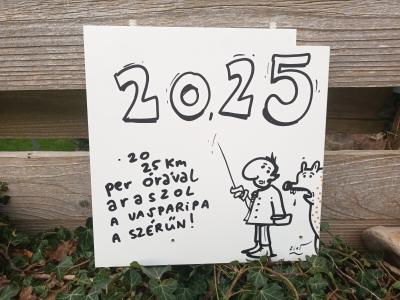 20,25
· 20
25 Km
per órával
araszol
A VASPARIPA
A SZÉRŰN!